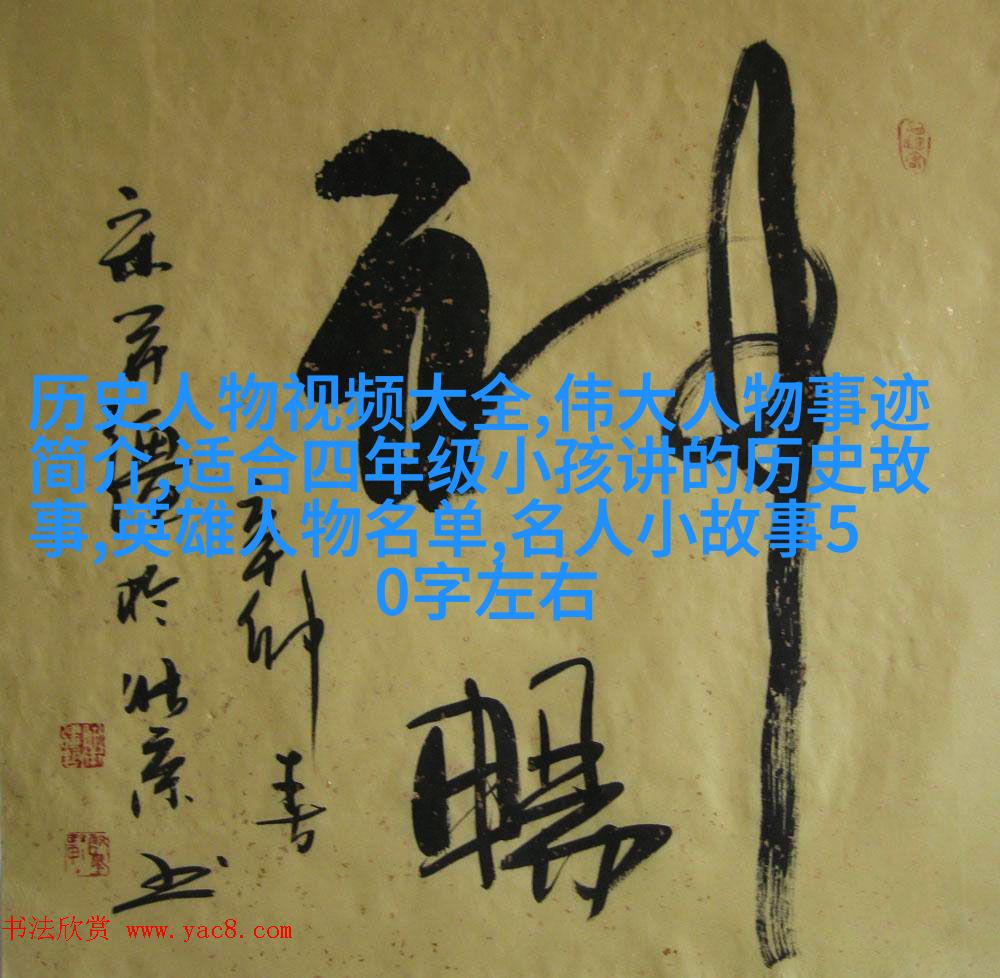 历史人物视频大全,伟大人物事迹
简介,适合四年级小孩讲的历史故
事,英雄人物名单,名人小故事5
0字左右
神暢
春
於北京
书法欣赏 www.yac8.com